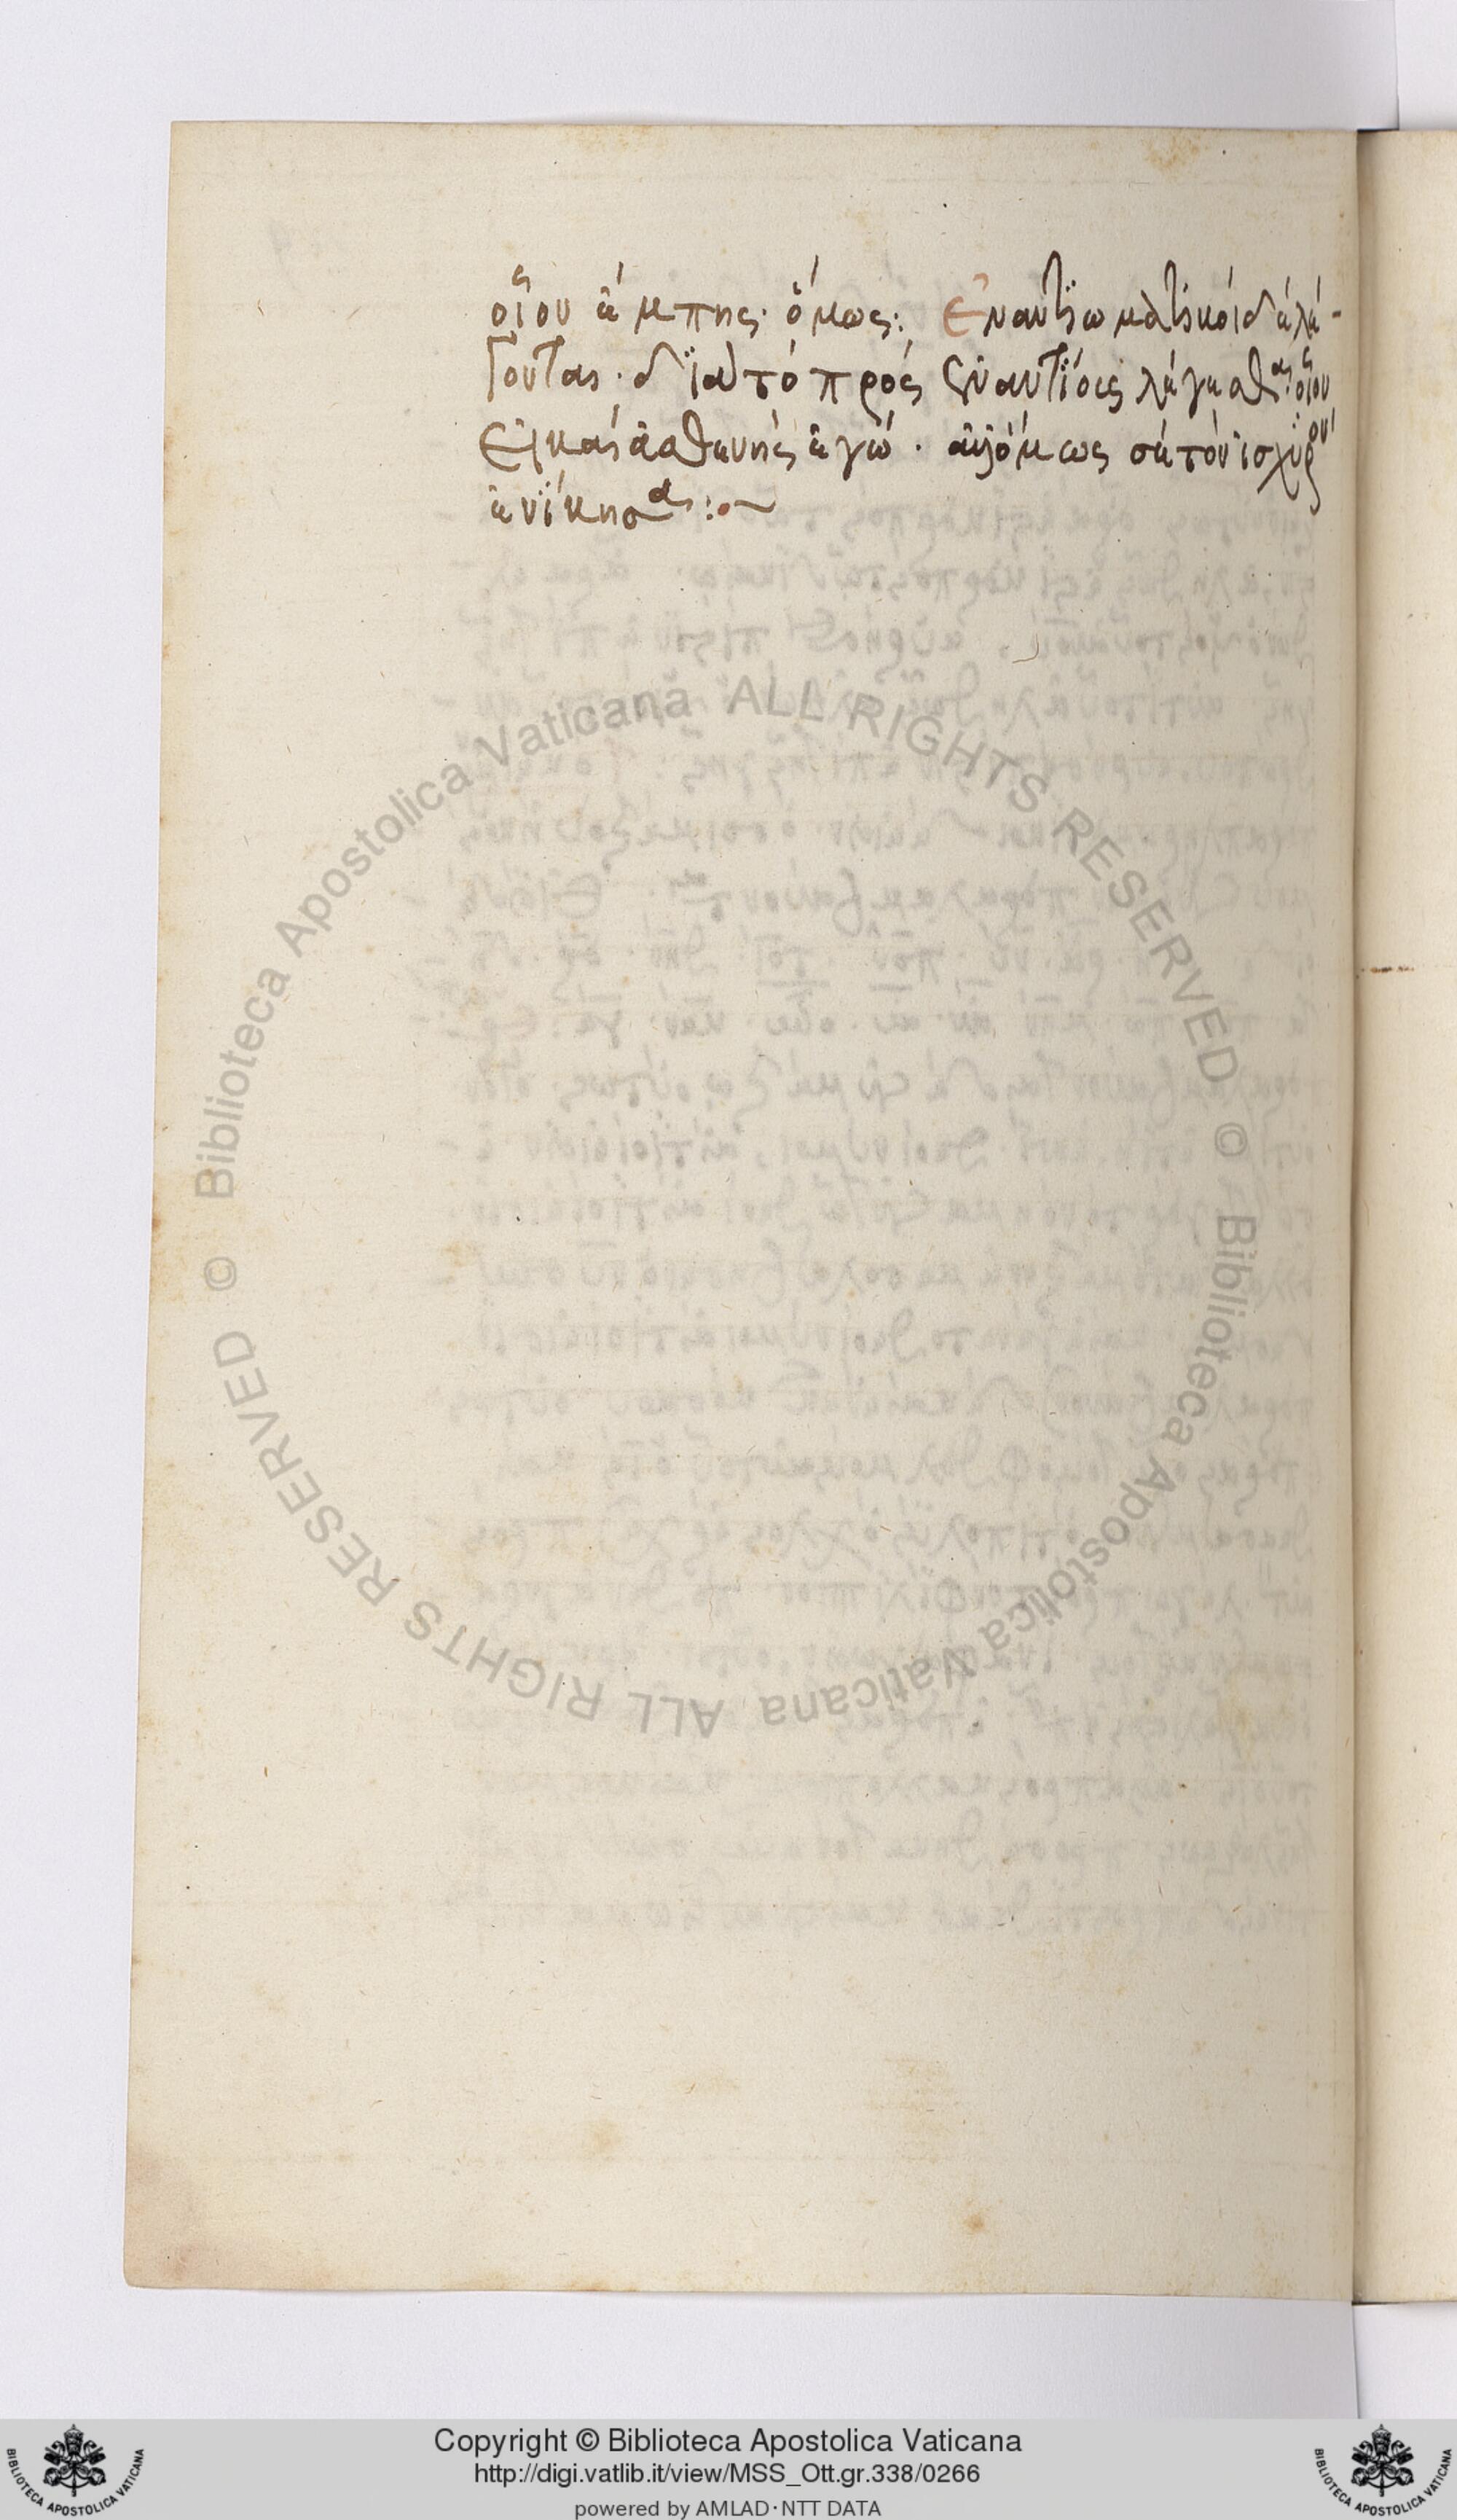 οἷον ἔμπης· ὅμως: Ἐναντιωματικοὶ δὲ λέ-
γονται· διὰ τὸ πρὸς ἐναντίους λέγεσθαι· οἷον
εἰ καὶ ἀσθενὴς ἐγὼ· ἀλλ' ὅμως σὲ τὸν ἰσχυρὸν
ἐνίκησα:~
© Biblioteca Apostolica Vaticana ALL RIGHTS RESERVED
© Biblioteca Apostolica Vaticana ALL RIGHTS RESERVED
BIBLIOTECA APOSTOLICA VATICANA
Copyright © Biblioteca Apostolica Vaticana
http://digi.vatlib.it/view/MSS_Ott.gr.338/0266
powered by AMLAD·NTT DATA
BIBLIOTECA APOSTOLICA VATICANA